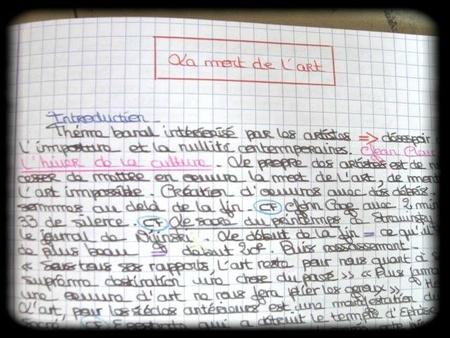 La mort de l'art
Introduction -
Thème banal intériorisé par les artistes => désespoir
L'imposture et la nullité contemporaines. Jean Clair
L'hiver de la culture. Le propre des artistes est de ne
cesser de mettre en oeuvre la mort de l'art, de
L'art impossible. Création d'oeuvres avec des débris.
sommes au delà de la fin. cf John Cage avec 4 min
33 de silence. cf Le sacre du printemps de Stravinsky
Le journal de Nijinski. Le début de la fin = ce qu'il
de plus beau => début 20e. Puis
« sous tous ses rapports, L'art reste pour nous quant à sa
suprême destination une chose du passé » « Plus jamais
une oeuvre d'art ne nous fera plier les genoux »
L'art, pour les siècles antérieurs est une manifestation du
sacré. cf Erostrate qui a détruit le temple d'Ephèse